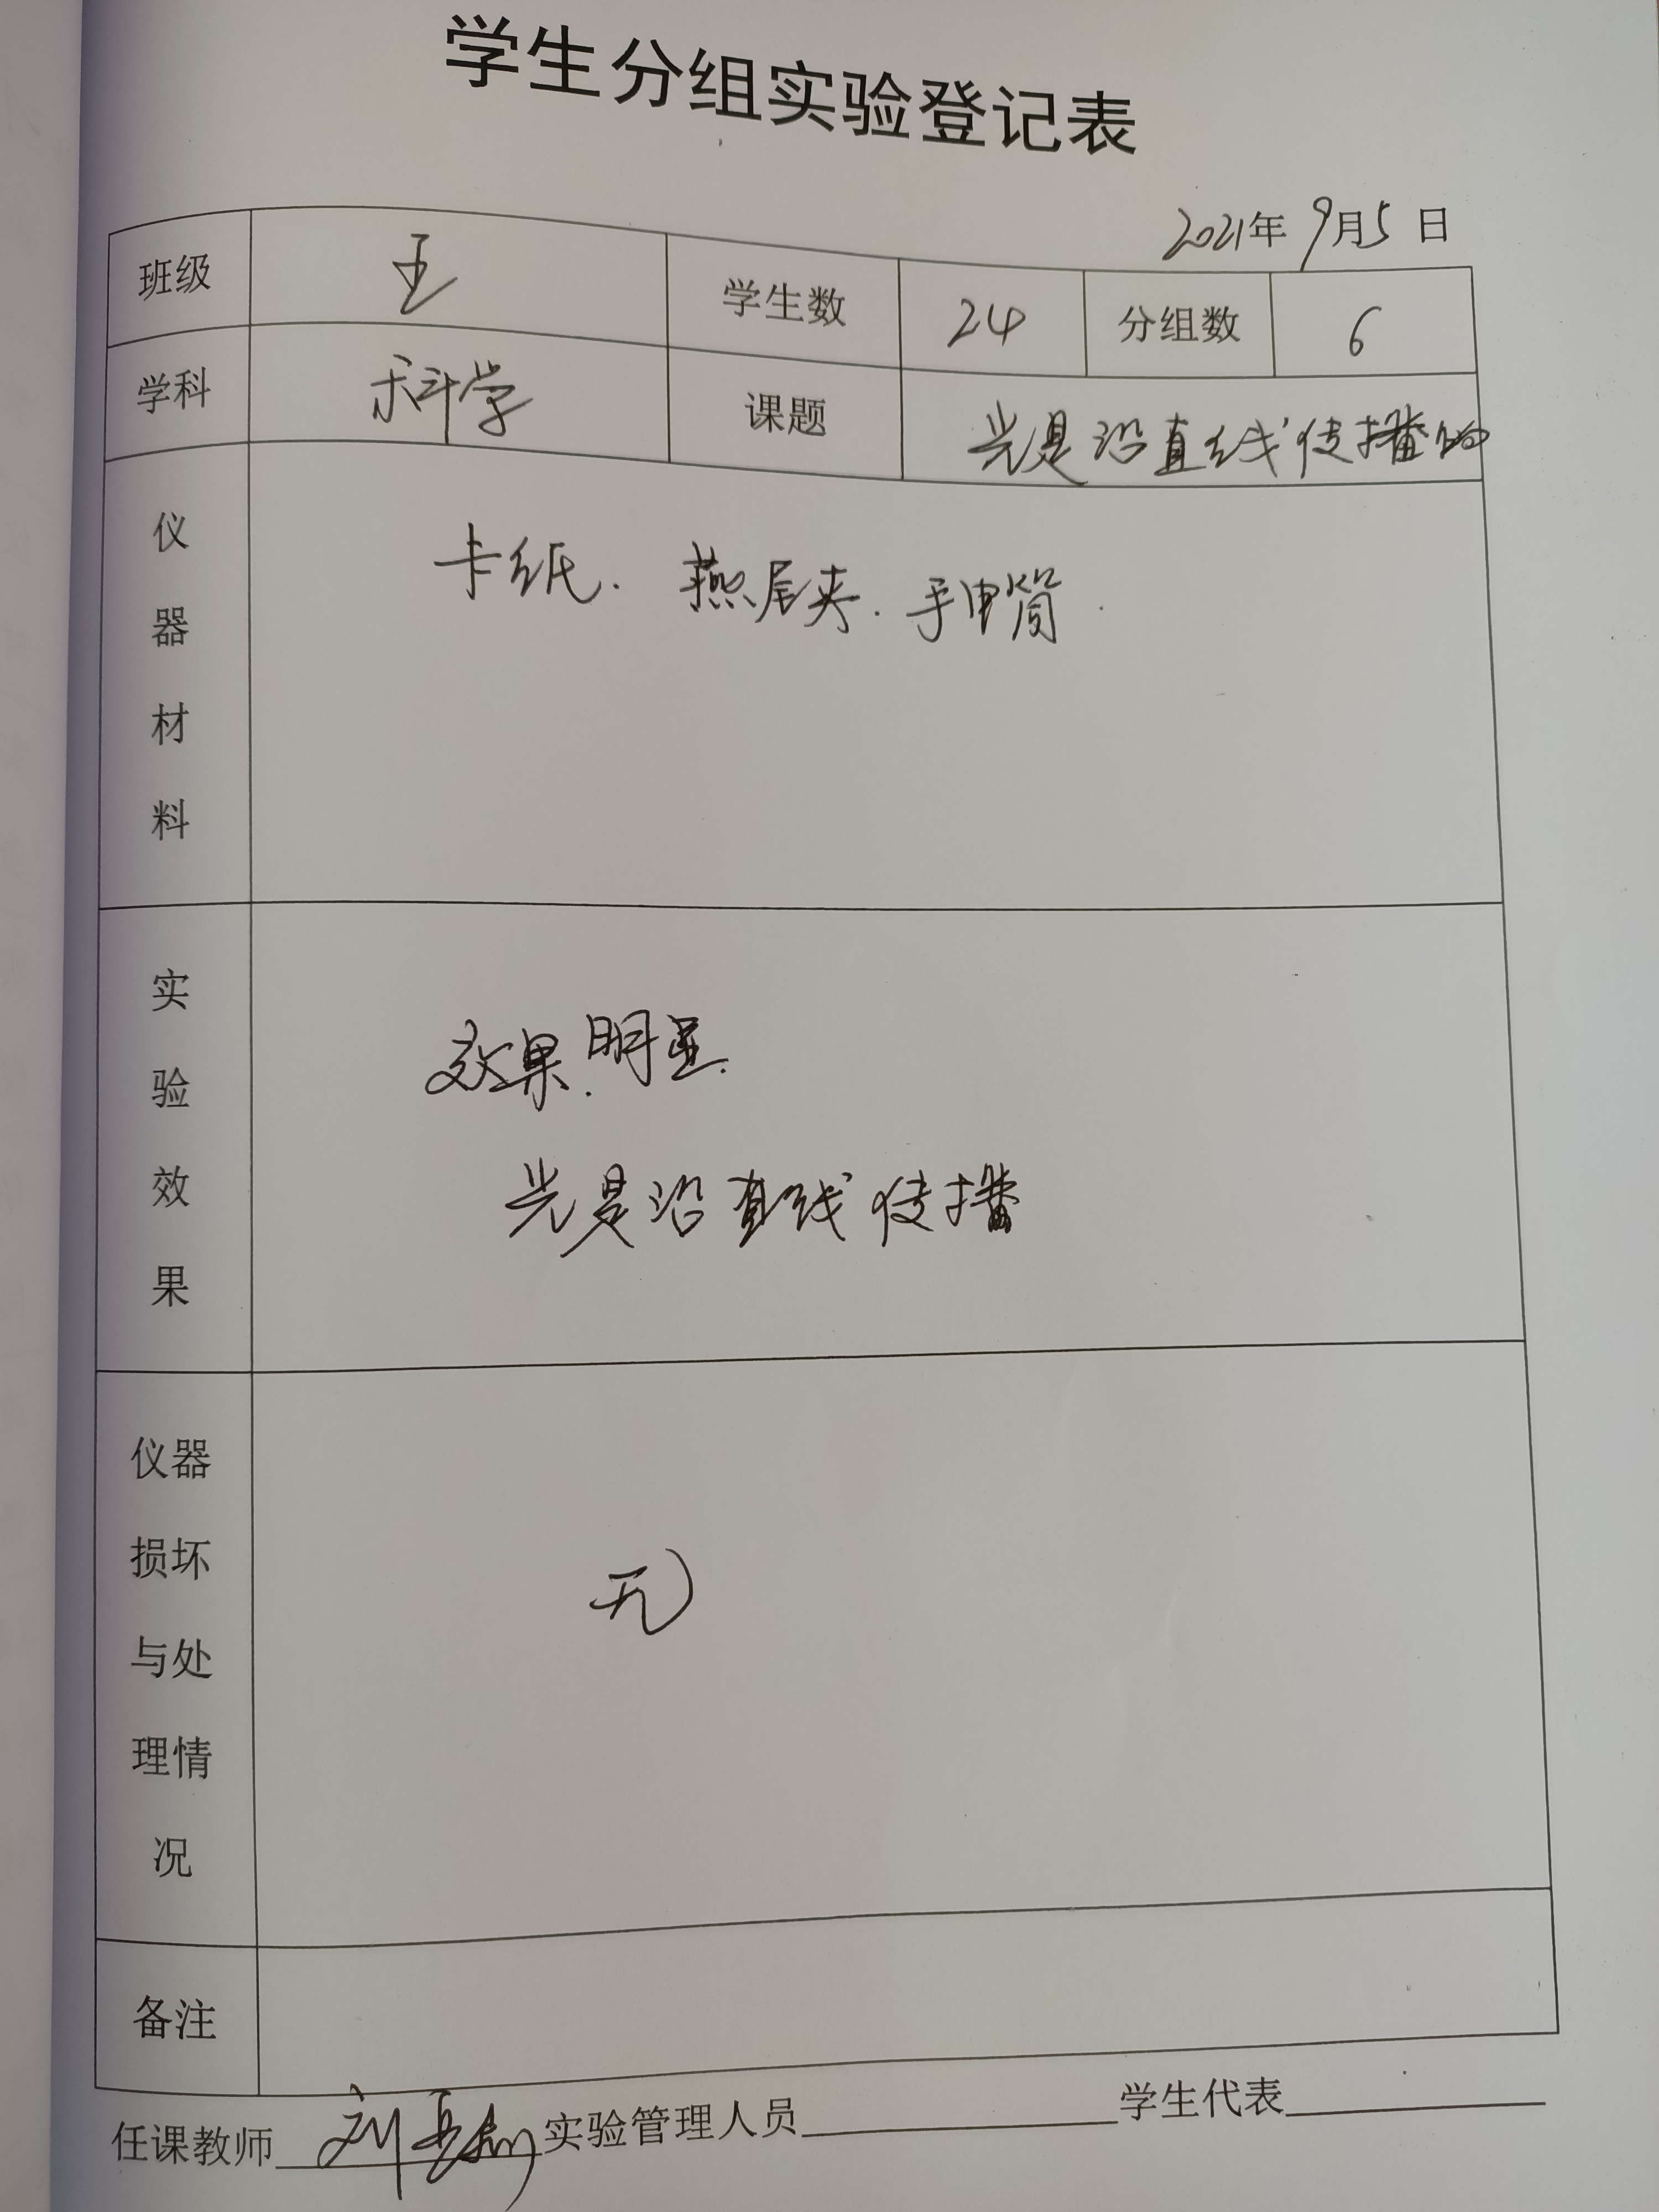 学生分组实验登记表
2021年 9月5日
班级 五 学生数 24 分组数 6
学科 科学 课题 光是沿直线传播的
仪器材料 卡纸. 燕尾夹. 手电筒.
实验效果 效果.明显.
光是沿直线传播
仪器损坏与处理情况 无
备注
任课教师 刘 实验管理人员 学生代表